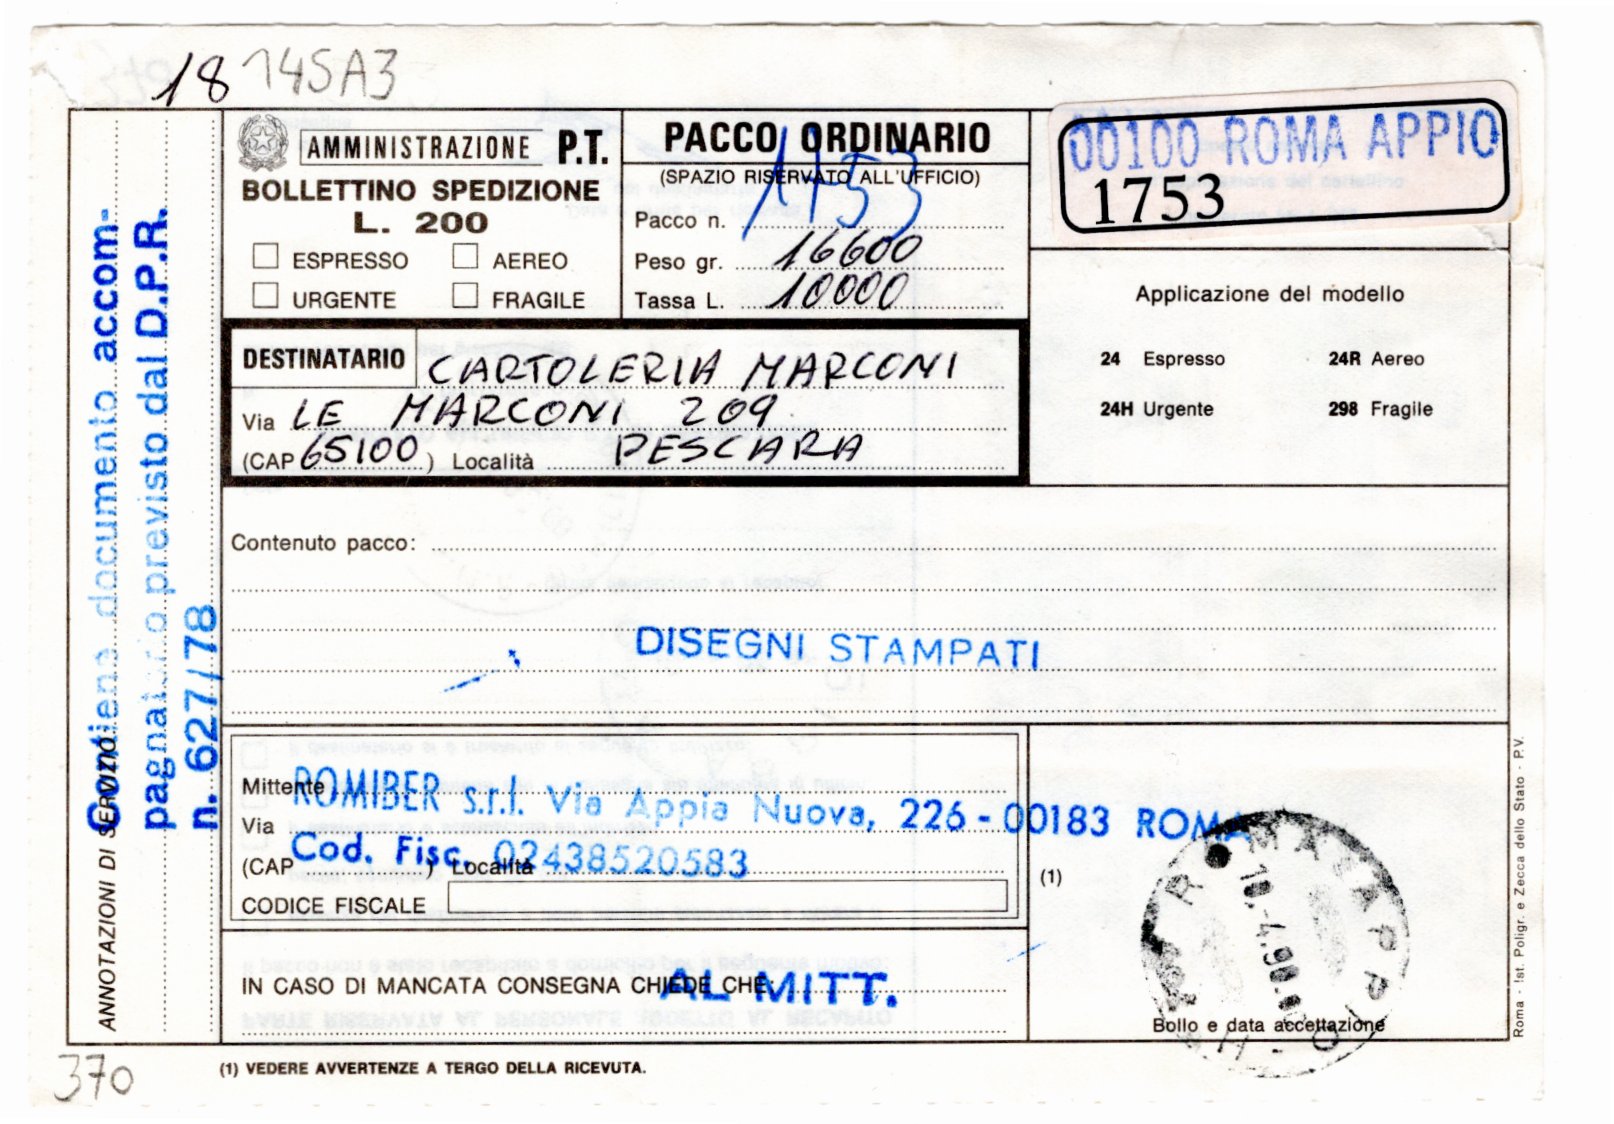 18 145A3
AMMINISTRAZIONE P.T.
BOLLETTINO SPEDIZIONE
L. 200
ESPRESSO AEREO
URGENTE FRAGILE
PACCO ORDINARIO
(SPAZIO RISERVATO ALL'UFFICIO)
Pacco n. 1753
Peso gr. 16600
Tassa L. 10000
00100 ROMA APPIO
1753
Applicazione del modello
24 Espresso 24R Aereo
24H Urgente 298 Fragile
DESTINATARIO CARTOLERIA MARCONI
Via LE MARCONI 209
(CAP 65100) Località PESCARA
Contenuto pacco:
DISEGNI STAMPATI
Contiene documento accom-
pagnatorio previsto dal D.P.R.
n. 627/78
ANNOTAZIONI DI SERVIZIO:
Mittente ROMIBER s.r.l. Via Appia Nuova, 226 - 00183 ROMA
Via
Cod. Fisc. 02438520583
(CAP ) Località
CODICE FISCALE
(1)
IN CASO DI MANCATA CONSEGNA CHIEDE CHE: AL MITT.
ROMA APPIO
Bollo e data accettazione
Roma - Ist. Poligr. e Zecca dello Stato - P.V.
370
(1) VEDERE AVVERTENZE A TERGO DELLA RICEVUTA.